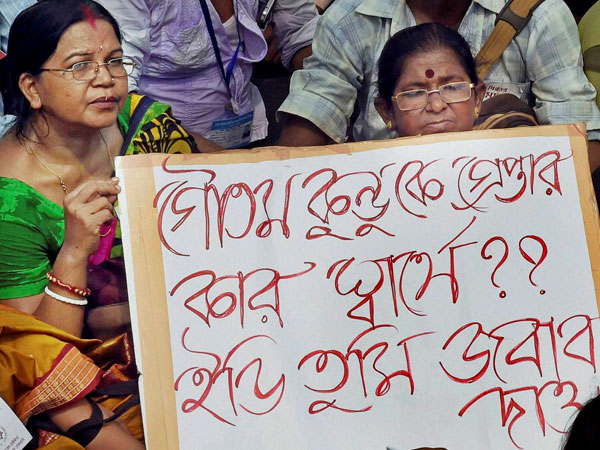 গৌতম কুন্ডুকে গ্রেপ্তার
কার স্বার্থে ??
ইডি তুমি জবাব
দাও